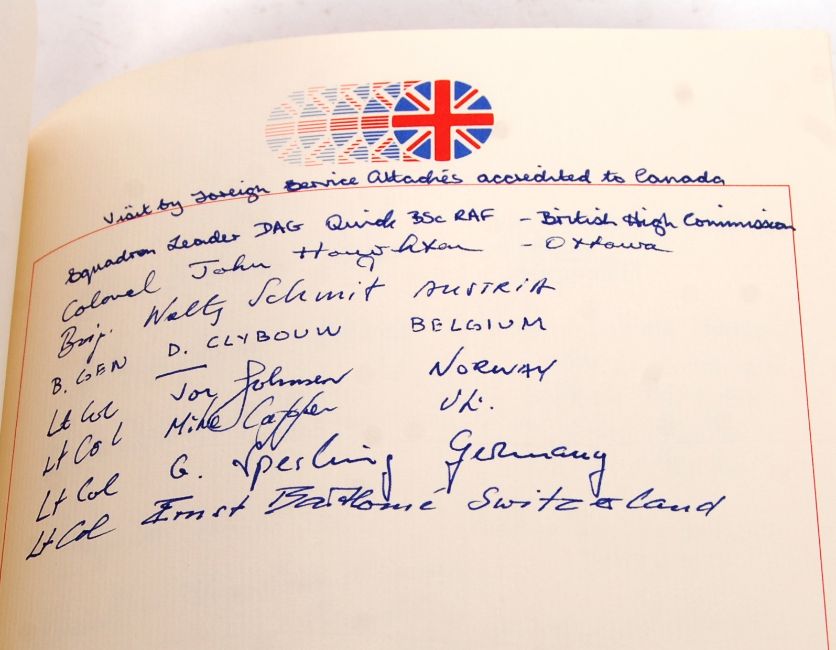 Visit by Foreign Service Attachés accredited to Canada
Squadron Leader DAG Quick BSc RAF - British High Commission
Colonel John - Ottawa
Brig. Schmit AUSTRIA
B. GEN D. CLYBOUW BELGIUM
Lt Col Jon Johnsen NORWAY
Lt Col Mike Capper UK.
Lt Col G. Sperling Germany
Lt Col Ernst Switzerland